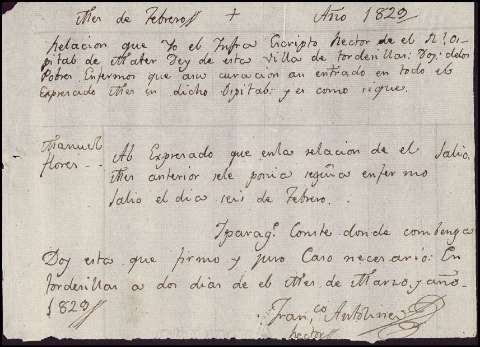 Mes de Febrero // + Año 1829
Relacion que Yo el Infra Escripto Rector de el Rl. Ospital de Mater Dey de esta villa de tordesillas: Doy: delos
Pobres Enfermos que asu curacion an entrado en todo el
Expresado Mes en dicho Ospital: y es como sigue.
Manuel
flores -- Al Expresado que enla relacion de el salio.
Mes anterior sele ponia seguia enfermo
salio el dia seis de Febrero.
Y paraqe. Conste donde combenga
Doy esta que firmo y juro Caso necesario: En
tordesillas a dos dias de el Mes de Marzo, y año
1829 //
Franco. Antolinez
Rector